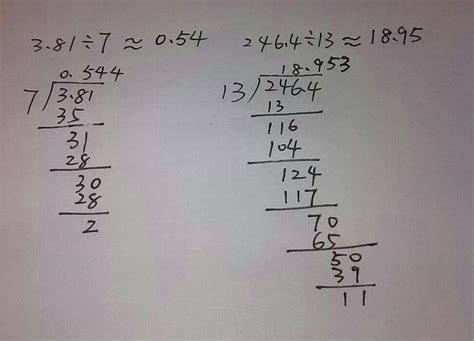 3.81÷7≈0.54
0.544
7 3.81
35
31
28
30
28
2
246.4÷13≈18.95
18.953
13 246.4
13
116
104
124
117
70
65
50
39
11